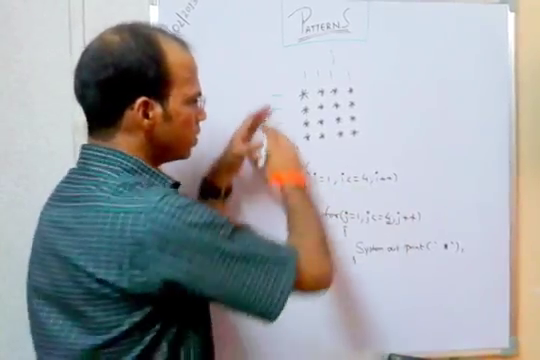 02/2013
PATTERNS
* * * *
* * * *
* * * *
* * * *
(i=1, i<=4, i++)
for(j=1, j<=4, j++)
{
System out print(" * "),
}